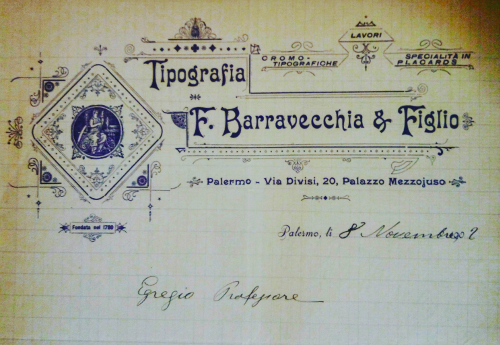 LAVORI
CROMO-
TIPOGRAFICHE
SPECIALITÀ IN
PLACARDS
Tipografia
F. Barravecchia & Figlio
Palermo - Via Divisi, 20, Palazzo Mezzojuso
Fondata nel 1790
Palermo, li 8 Novembre
Egregio Professore